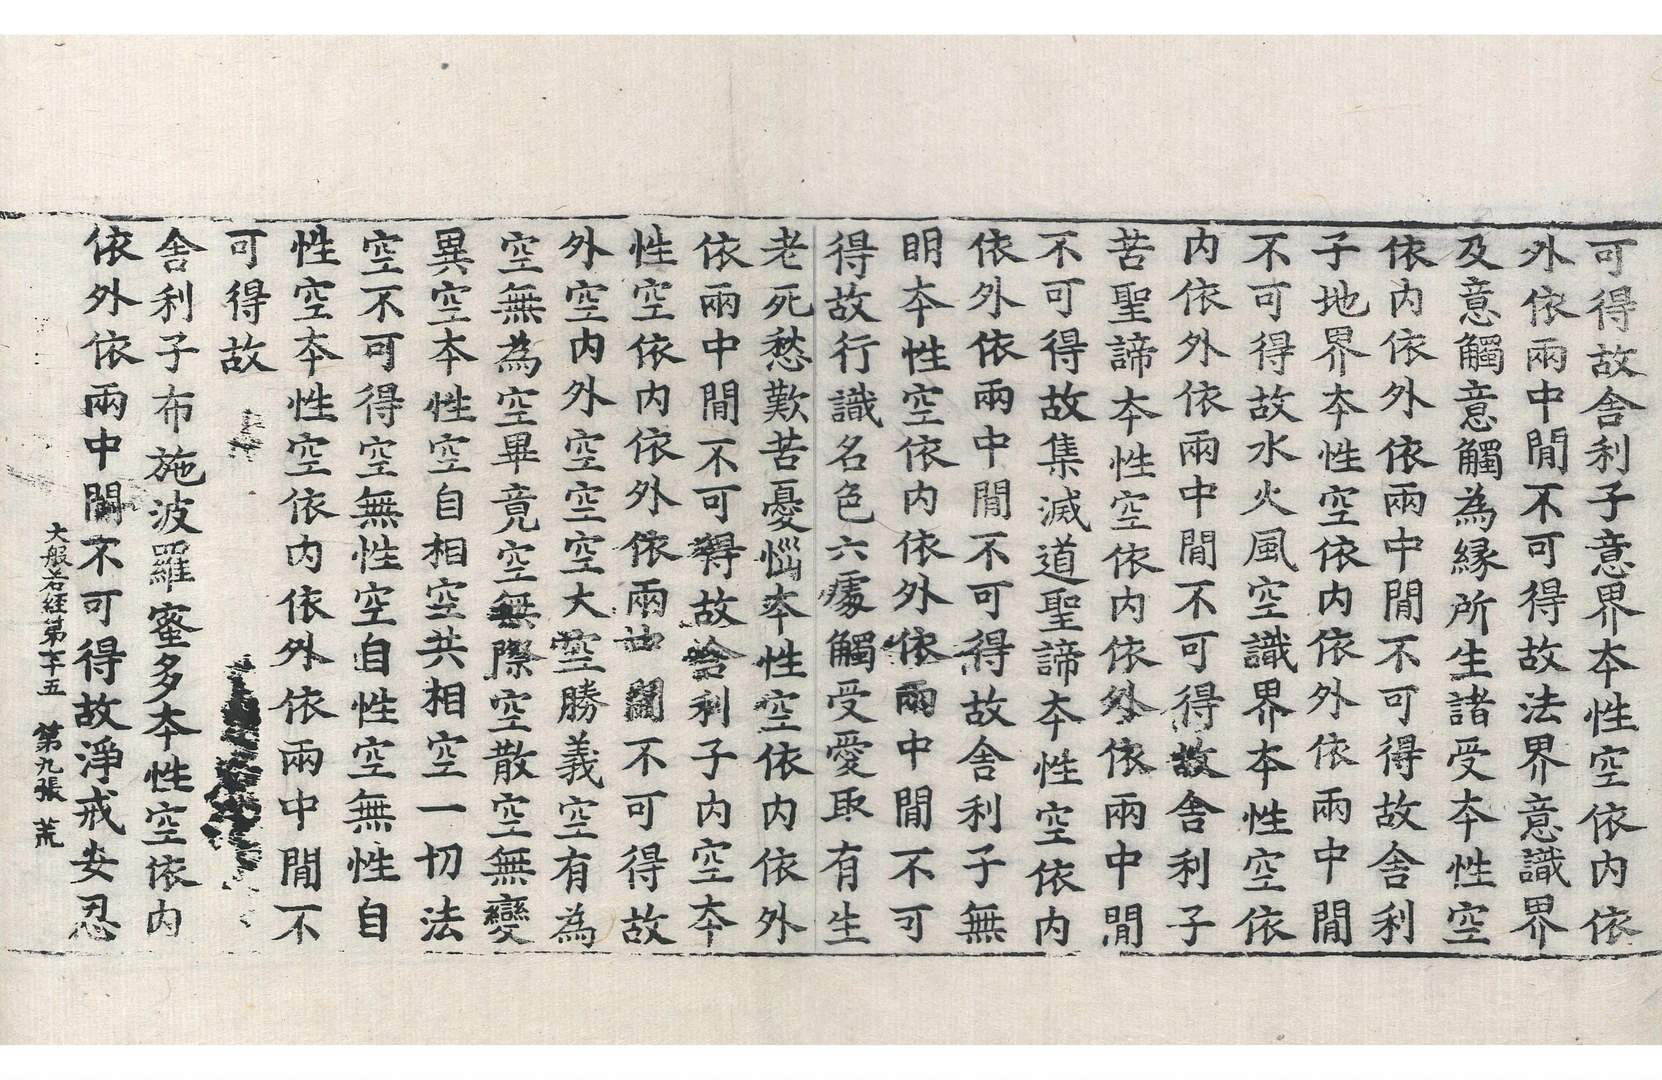 可得故舍利子意界本性空依内依
外依兩中閒不可得故法界意識界
及意觸意觸為縁所生諸受本性空
依内依外依兩中閒不可得故舍利
子地界本性空依内依外依兩中閒
不可得故水火風空識界本性空依
内依外依兩中閒不可得故舍利子
苦聖諦本性空依内依外依兩中閒
不可得故集滅道聖諦本性空依内
依外依兩中閒不可得故舍利子無
明本性空依内依外依兩中閒不可
得故行識名色六處觸受愛取有生
老死愁歎苦憂惱本性空依内依外
依兩中閒不可得故舍利子内空本
性空依内依外依兩中閒不可得故
外空内外空空空大空勝義空有為
空無為空畢竟空無際空散空無變
異空本性空自相空共相空一切法
空不可得空無性空自性空無性自
性空本性空依内依外依兩中閒不
可得故
舍利子布施波羅蜜多本性空依内
依外依兩中閒不可得故淨戒安忍
大般若経第七十五 第九張 荒